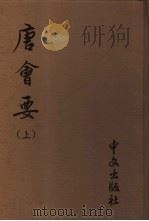 唐會要
(上)
中文出版社
研狗